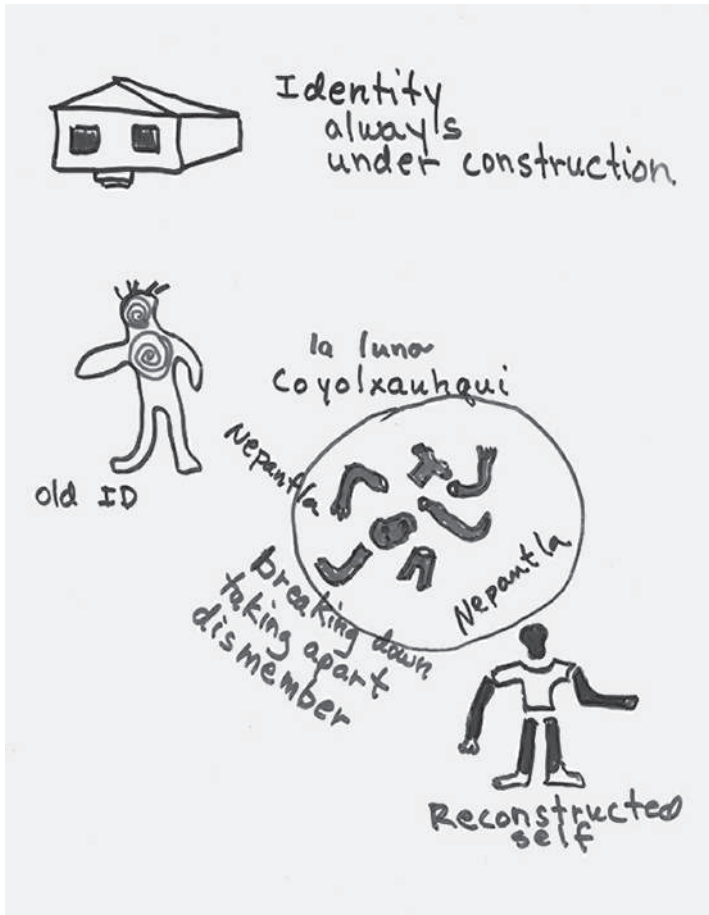 Identity
always
under construction.
la luna
Coyolxauhqui
Nepantla
old ID
Nepantla
breaking down
taking apart
dismember
Reconstructed
self